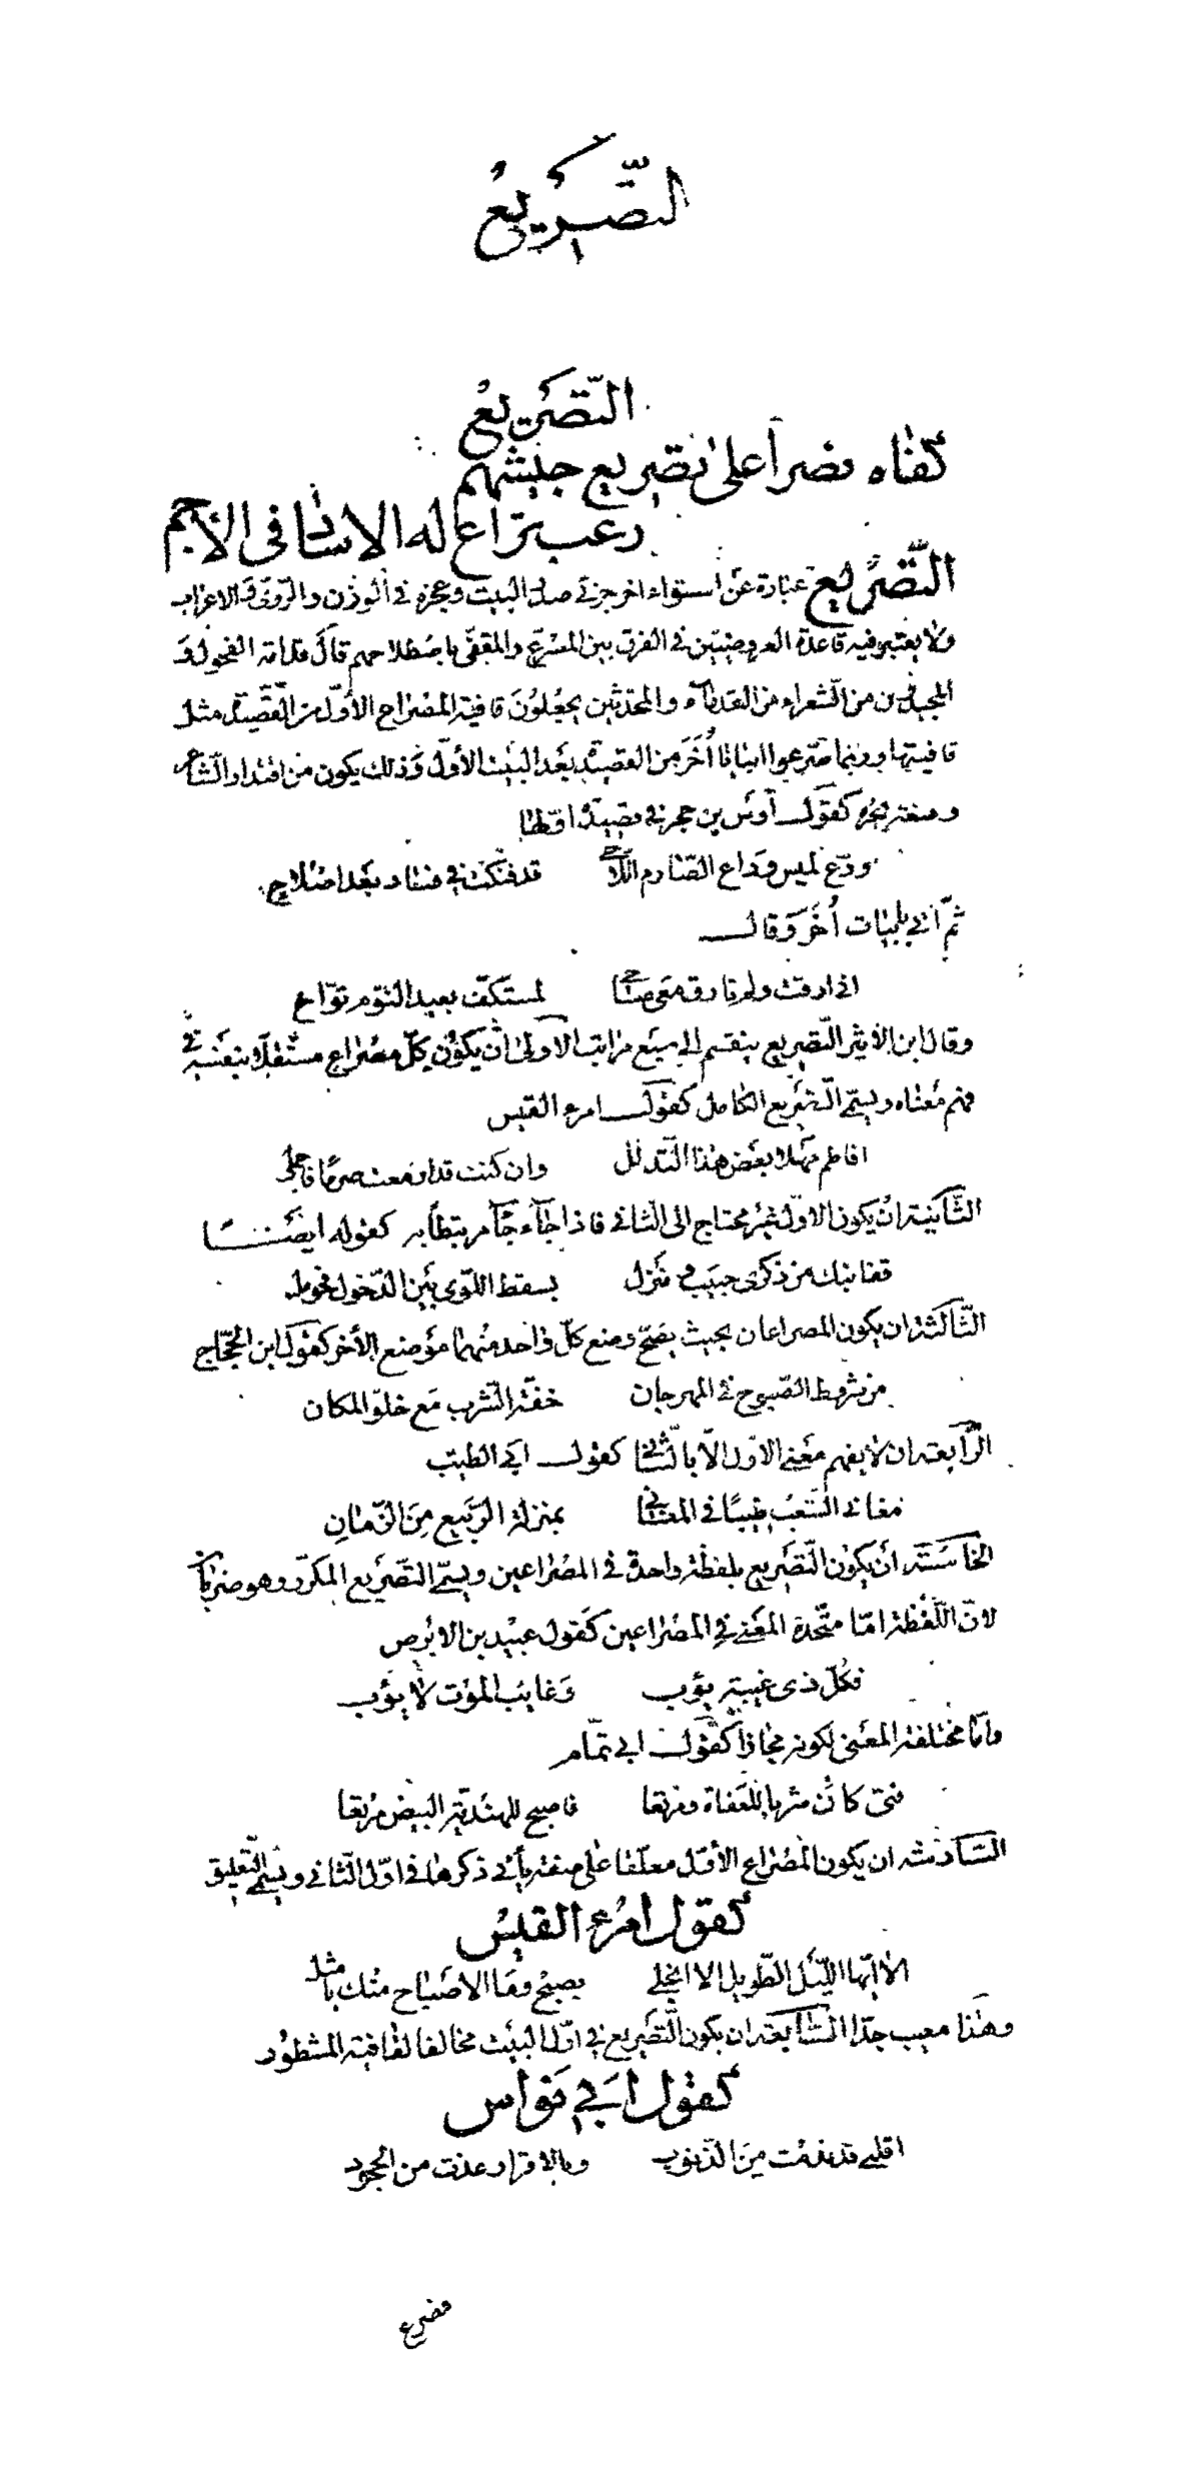 التّصريع
التّصريع
كفاه نصرا على تصريع جيشهم
رعب تراع له الاساد فى الاجم
التّصريع عبارة عن استواء اخر جزء في صدر البيت وعجزه في الوزن والروى والاعراب
ولا يعتبر فيه قاعدة العروضيّين في الفرق بين المصرّع والمقفّى باصطلاحهم قال قدامة الفحول و
المجيدون من الشعراء من القدماء والمحدثين يجعلون قافية المصراع الاوّل من القصيدة مثل
قافيتها وربما صرّعوا ابياتا أُخَر من القصيدة بعد البيت الأوّل وذلك يكون من اقتدار الشاعر
وسعة بحره كقول اوس بن حجر في قصيدة اوّلها
ودّع لميس وداع الصّارم اللّاحي قد فنكت في فساد بعد اصلاح
ثمّ اتى بابيات أُخَر وقال
انى ارقت ولم تارق معى صاحى لمستكفّ بعيد النّوم نوّاح
وقال ابن الاثير التّصريع ينقسم الى سبع مراتب الاولى أن يكون كلّ مصراع مستقلّا بنفسه في
فهم معناه ويسمّى التصريع الكامل كقول امرء القيس
افاطم مهلا بعض هذا التّدلل وان كنت قد ازمعت صرمًا فاجملى
الثّانية ان يكون الاوّل غير محتاج الى الثانى فاذا جاء جاء مرتبطا به كقوله ايضًا
قفا نبك من ذكرى حبيب ومنزل بسقط اللّوى بين الدّخول فحومل
الثّالثة ان يكون المصراعان بحيث يصحّ وضع كلّ واحد منهما موضع الأخر كقول ابن الحجّاج
من شروط الصّبوح في المهرجان خفّة الشّرب مع خلوّ المكان
الرّابعة ان لا يفهم معنى الاوّل الّا بالثّانى كقول ابى الطيّب
مغانى الشّعب طيبًا فى المغانى بمنزلة الرّبيع مِن الزّمانِ
الخامسة أن يكون التّصريع بلفظة واحدة فى المصراعين ويسمّى التصريع المكرّر وهو ضربان
لانّ اللّفظة امّا متّحدة المعنى في المصراعين كقول عبيد بن الابرص
فكلّ ذى غيبة يؤب وغايب الموت لا يؤب
وامّا مختلفة المعنى لكونه مجازا كقول ابى تمّام
فتى كان شربا للعفاة ومرتعا فاصبح للهنديّة البيض مرتعا
السّادسة ان يكون المصراع الأوّل معلّقا على صفة يأتى ذكرها فى اوّل الثّانى ويسمّى التّعليق
كقول امرء القيس
الا ايّها اللّيل الطّويل الا انجلى بصبح وما الاصباح منك بامثل
وهذا معيب جدّا السّابعة ان يكون التّصريع في اوّل البيت مخالفا لقافيته المشطور
كقول ابى نواس
اقلنى قد ندمت من الذّنوب وبالاقرار عذت من الجحود
مصرع